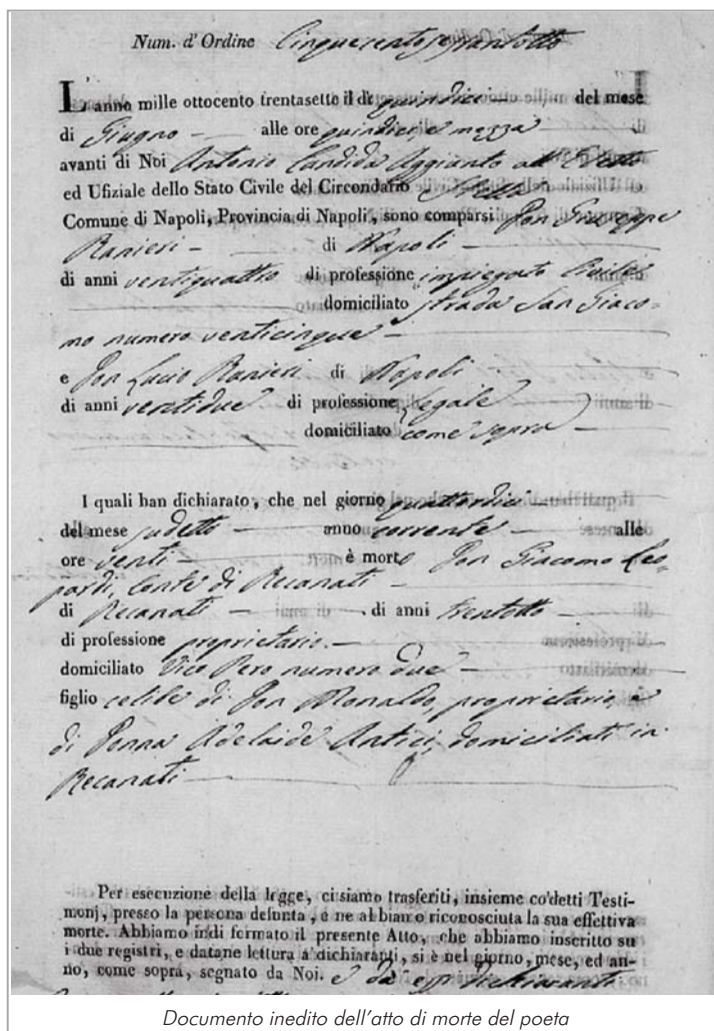 Num. d'Ordine
L'anno mille ottocento trentasette il dì quindici del mese
di Giugno alle ore quindici e mezza
avanti di Noi Antonio Candida Aggiunto all' Eletto
ed Ufiziale dello Stato Civile del Circondario Stella
Comune di Napoli, Provincia di Napoli, sono comparsi Don Giuseppe
Ranieri di Napoli
di anni ventiquattro di professione impiegato Civile
domiciliato strada San Giaco-
mo numero venticinque
e Don Lucio Ranieri di Napoli
di anni ventidue di professione legale
domiciliato come sopra
I quali han dichiarato, che nel giorno quattordici
del mese sudetto anno corrente alle
ore venti è morto Don Giacomo Leo-
pardi, Conte di Recanati
di Recanati di anni trentotto
di professione proprietario
domiciliato Vico Pero numero due
figlio celibe di Don Monaldo, proprietario, e
di Donna Adelaide Antici, domiciliati in
Recanati
Per esecuzione della legge, ci siamo trasferiti, insieme co'detti Testi-
monj, presso la persona defunta, e ne abbiamo riconosciuta la sua effettiva
morte. Abbiamo indi formato il presente Atto, che abbiamo inscritto su
i due registri, e datane lettura a'dichiaranti, si è nel giorno, mese, ed an-
no, come sopra, segnato da Noi. e da' dichiaranti
Documento inedito dell'atto di morte del poeta